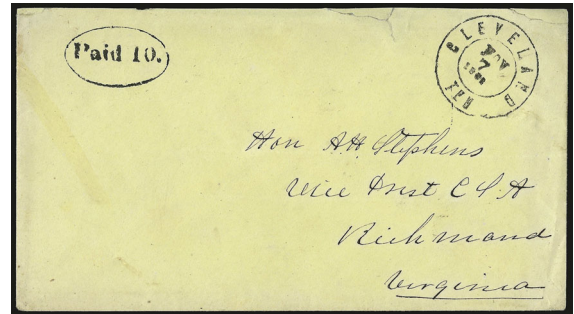 Paid 10.
CLEVELAND
NOV
7
TEN
Hon A H. Stephens
Vice Prest C S A
Richmond
Virginia